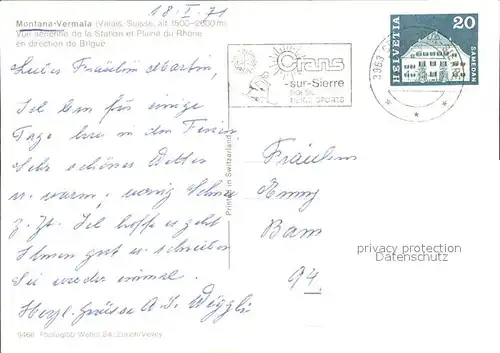 18.I.71
Montana-Vermala (Valais, Suisse, alt 1500-2600 m)
Vue aérienne de la Station et Plaine du Rhône
en direction de Brigue
Liebes Fräulein Martin,
Ich bin für einige
Tage hier in den Ferien.
Sehr schönes Wetter
u. warm; wenig Schnee
z. Zt. Ich hoffe es geht
Ihnen gut u. schreiben
Sie wieder einmal.
Herzl. Grüsse A. J. Wäggli
9466 Photoglob-Wehrli SA, Zürich/Vevey
Printed in Switzerland
Crans
-sur-Sierre
SOLEIL
NEIGE SPORTS
3963
HELVETIA
20
SAMEDAN
Fräulein
Bam
94.
privacy protection
Datenschutz